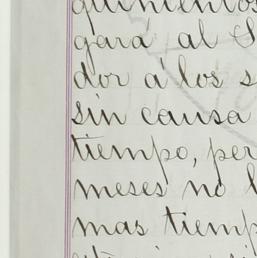 quinientos
gará al S
dor á los s
sin causa
tiempo, per
meses no l
mas tiemp